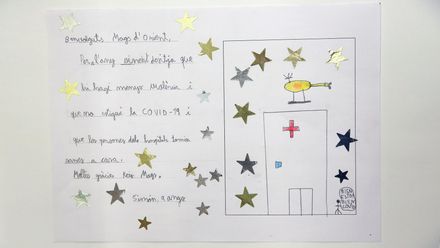 Benvolguts Mags d'Orient,
Per l'any vinent desitjo que
hi hagi menys violència i
que no estigui la COVID-19 i
que les persones dels hospitals tornin
sanes a casa.
Moltes gràcies Reis Mags.
Simón, 9 anys